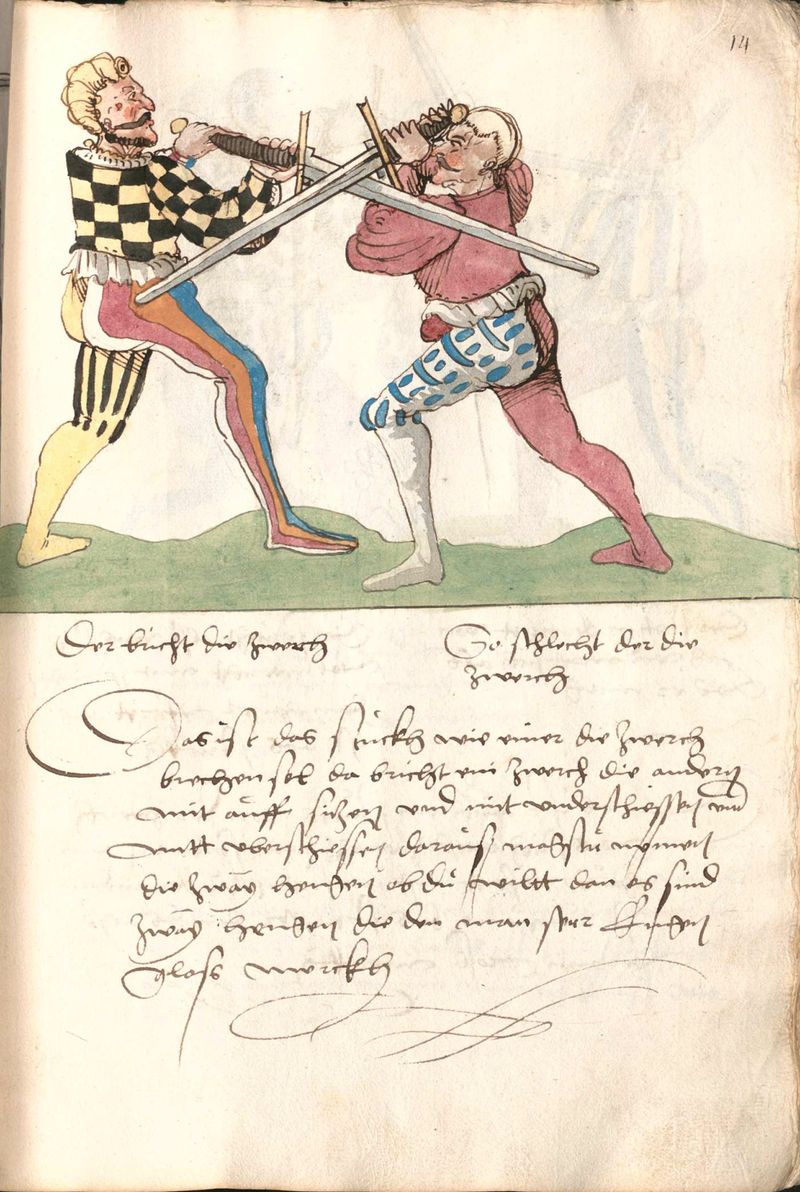 14
Der bricht die zwerch
So schlecht der die
zwerch
Das ist das stuckh wie einer die zwerch
brechen sol da bricht ein zwerch die andern
mit auff sitzen vnd mit vnderschiessen vnd
mitt vberschiessen darauss magstu nemen
die zway hengen ob du wiltt dan es sind
zway hengen die den man ser